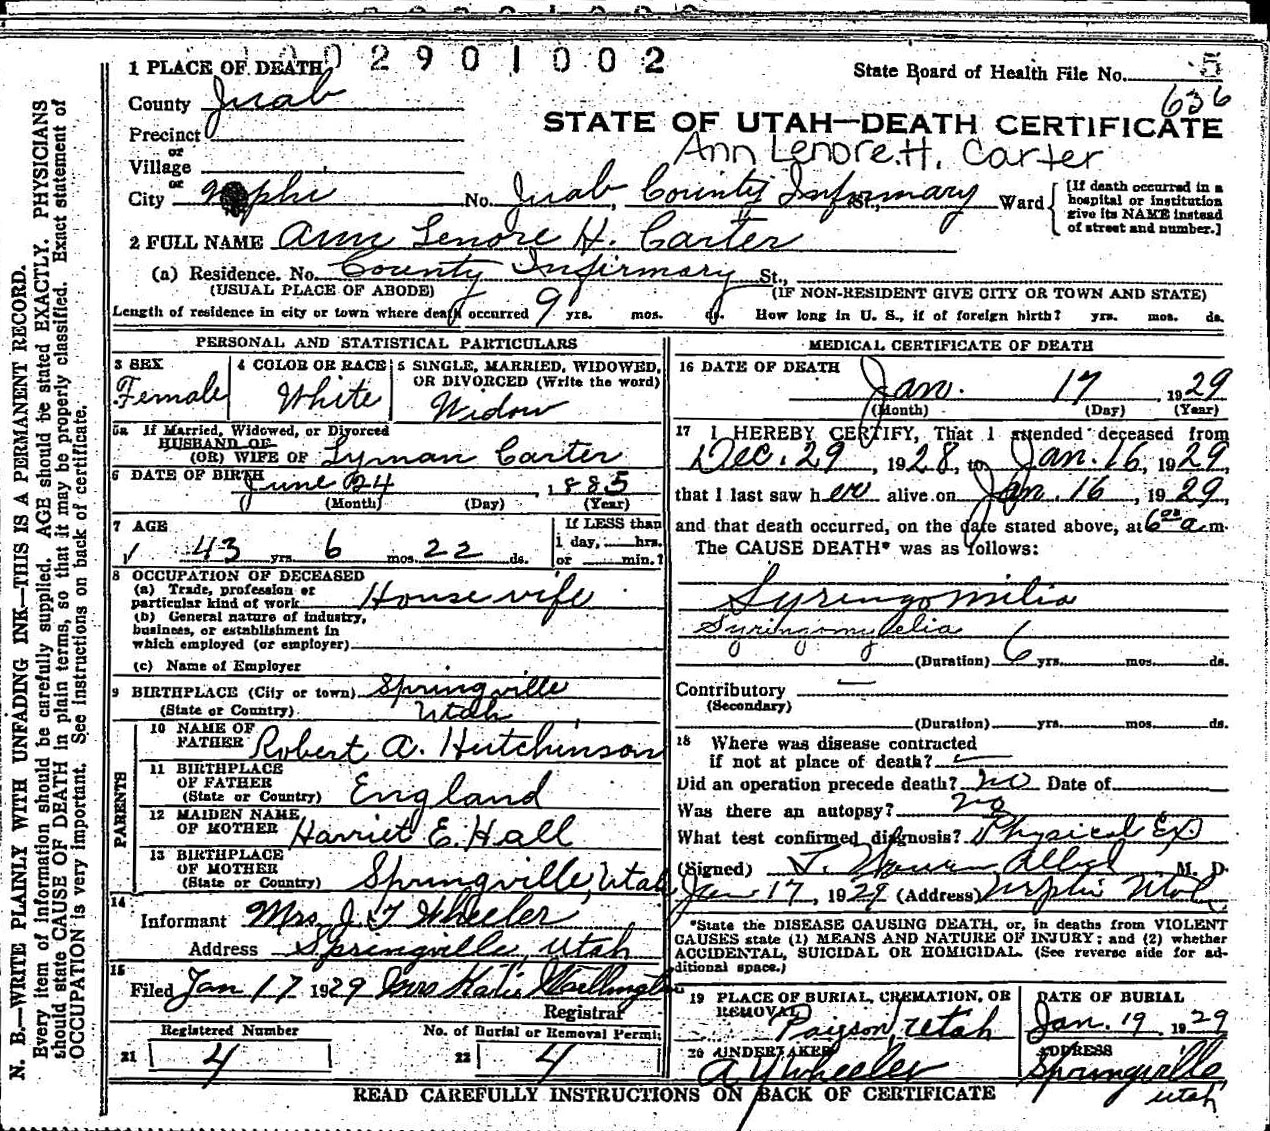 0 0 2 9 0 1 0 0 2
1 PLACE OF DEATH
State Board of Health File No. 5
636
County Juab
STATE OF UTAH—DEATH CERTIFICATE
Precinct
or
Ann Lenore H. Carter
Village
or
City Nephi No. Juab County Infirmary St., Ward
[If death occurred in a
hospital or institution
give its NAME instead
of street and number.]
2 FULL NAME Ann Lenore H. Carter
(a) Residence. No. County Infirmary St.,
(USUAL PLACE OF ABODE) (IF NON-RESIDENT GIVE CITY OR TOWN AND STATE)
Length of residence in city or town where death occurred 9 yrs. mos. ds. How long in U. S., if of foreign birth? yrs. mos. ds.
PERSONAL AND STATISTICAL PARTICULARS
3 SEX
Female
4 COLOR OR RACE
White
5 SINGLE, MARRIED, WIDOWED,
OR DIVORCED (Write the word)
Widow
5a If Married, Widowed, or Divorced
HUSBAND OF
(OR) WIFE OF Lyman Carter
6 DATE OF BIRTH
June 24, 1885
(Month) (Day) (Year)
7 AGE
43 yrs. 6 mos. 22 ds.
If LESS than
1 day, hrs.
or min.?
8 OCCUPATION OF DECEASED
(a) Trade, profession or
particular kind of work Housewife
(b) General nature of industry,
business, or establishment in
which employed (or employer)
(c) Name of Employer
9 BIRTHPLACE (City or town) Springville
(State or Country) Utah
PARENTS
10 NAME OF
FATHER Robert A. Hutchinson
11 BIRTHPLACE
OF FATHER
(State or Country) England
12 MAIDEN NAME
OF MOTHER Harriet E. Hall
13 BIRTHPLACE
OF MOTHER
(State or Country) Springville, Utah
14
Informant Mrs. J. F. Wheeler,
Address Springville, Utah
15
Filed Jan 17 1929 Mrs Katie
Registrar
Registered Number
21 4
No. of Burial or Removal Permit
22 4
MEDICAL CERTIFICATE OF DEATH
16 DATE OF DEATH
Jan. 17, 1929
(Month) (Day) (Year)
17 I HEREBY CERTIFY, That I attended deceased from
Dec. 29, 1928, to Jan. 16, 1929,
that I last saw her alive on Jan. 16, 1929
and that death occurred, on the date stated above, at 6 00 a.m.
The CAUSE DEATH* was as follows:
Syringomilia
Syringomyelia
(Duration) 6 yrs. mos. ds.
Contributory —
(Secondary)
(Duration) yrs. mos. ds.
18 Where was disease contracted
if not at place of death?
Did an operation precede death? no Date of
Was there an autopsy? no
What test confirmed diagnosis? Physical Ex
(Signed) M. D.
Jan 17, 1929 (Address) Nephi Utah
*State the DISEASE CAUSING DEATH, or, in deaths from VIOLENT
CAUSES state (1) MEANS AND NATURE OF INJURY; and (2) whether
ACCIDENTAL, SUICIDAL OR HOMICIDAL. (See reverse side for ad-
ditional space.)
19 PLACE OF BURIAL, CREMATION, OR
REMOVAL
Payson, Utah
DATE OF BURIAL
Jan. 19, 1929
20 UNDERTAKER
A Y Wheeler
ADDRESS
Springville
Utah
READ CAREFULLY INSTRUCTIONS ON BACK OF CERTIFICATE
N. B.—WRITE PLAINLY WITH UNFADING INK—THIS IS A PERMANENT RECORD.
Every item of information should be carefully supplied. AGE should be stated EXACTLY. PHYSICIANS
should state CAUSE OF DEATH in plain terms, so that it may be properly classified. Exact statement of
OCCUPATION is very important. See instructions on back of certificate.